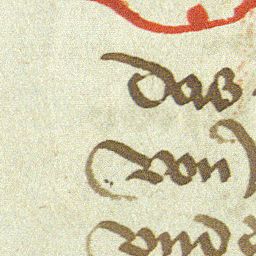 das
von
vnde